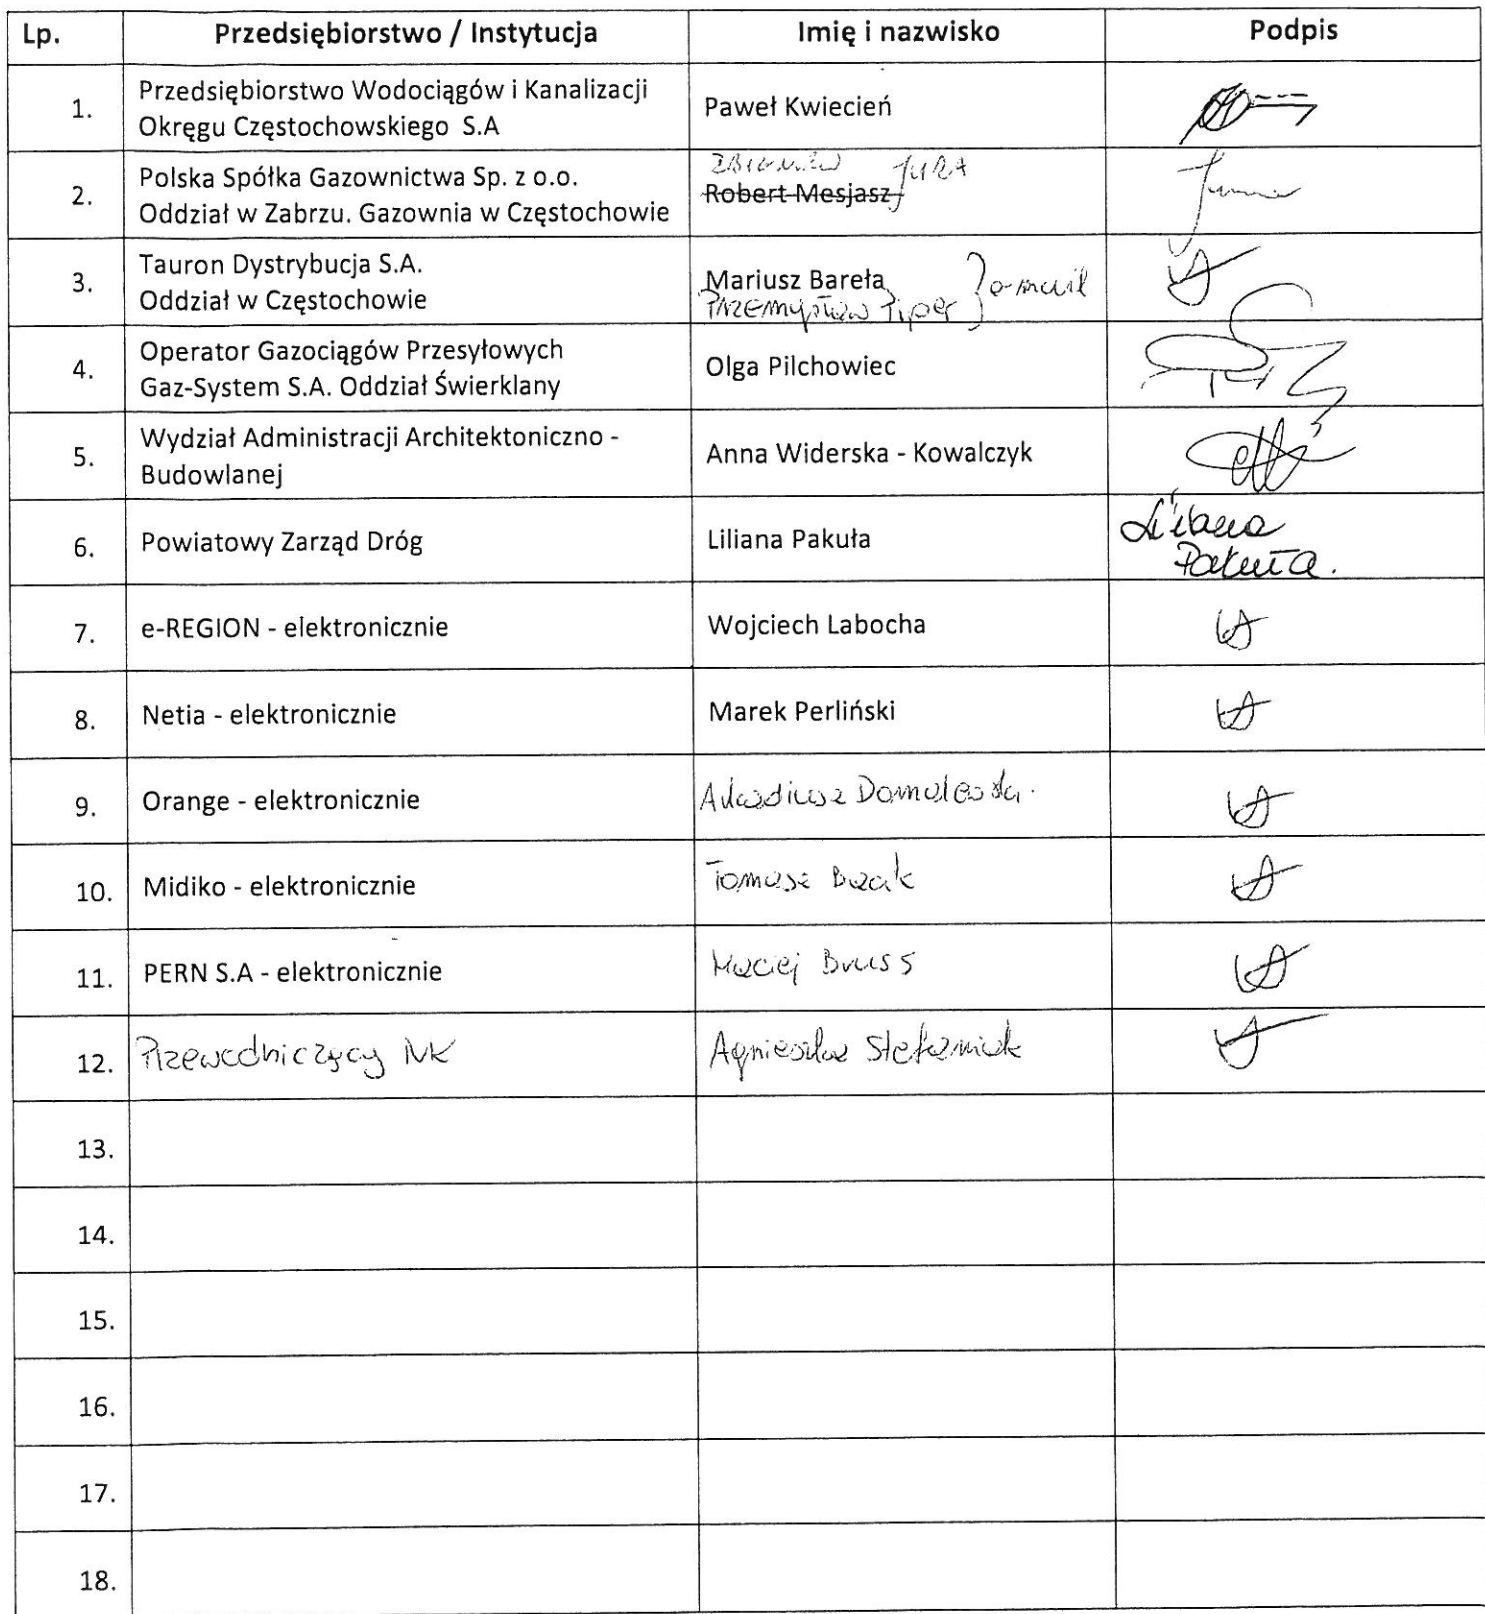 Lp. Przedsiębiorstwo / Instytucja Imię i nazwisko Podpis
1. Przedsiębiorstwo Wodociągów i Kanalizacji
Okręgu Częstochowskiego S.A Paweł Kwiecień
ZBIGNIEW JURA
2. Polska Spółka Gazownictwa Sp. z o.o.
Oddział w Zabrzu. Gazownia w Częstochowie Robert Mesjasz
3. Tauron Dystrybucja S.A.
Oddział w Częstochowie Mariusz Bareła e-mail
PRZEMysław Piper
4. Operator Gazociągów Przesyłowych
Gaz-System S.A. Oddział Świerklany Olga Pilchowiec
5. Wydział Administracji Architektoniczno -
Budowlanej Anna Widerska - Kowalczyk
6. Powiatowy Zarząd Dróg Liliana Pakuła Liliana
Pakuła.
7. e-REGION - elektronicznie Wojciech Labocha
8. Netia - elektronicznie Marek Perliński
9. Orange - elektronicznie Arkadiusz
10. Midiko - elektronicznie Tomasz
11. PERN S.A - elektronicznie Maciej Bruss
12. Przewodniczący NK Agnieszka Stefaniak
13.
14.
15.
16.
17.
18.